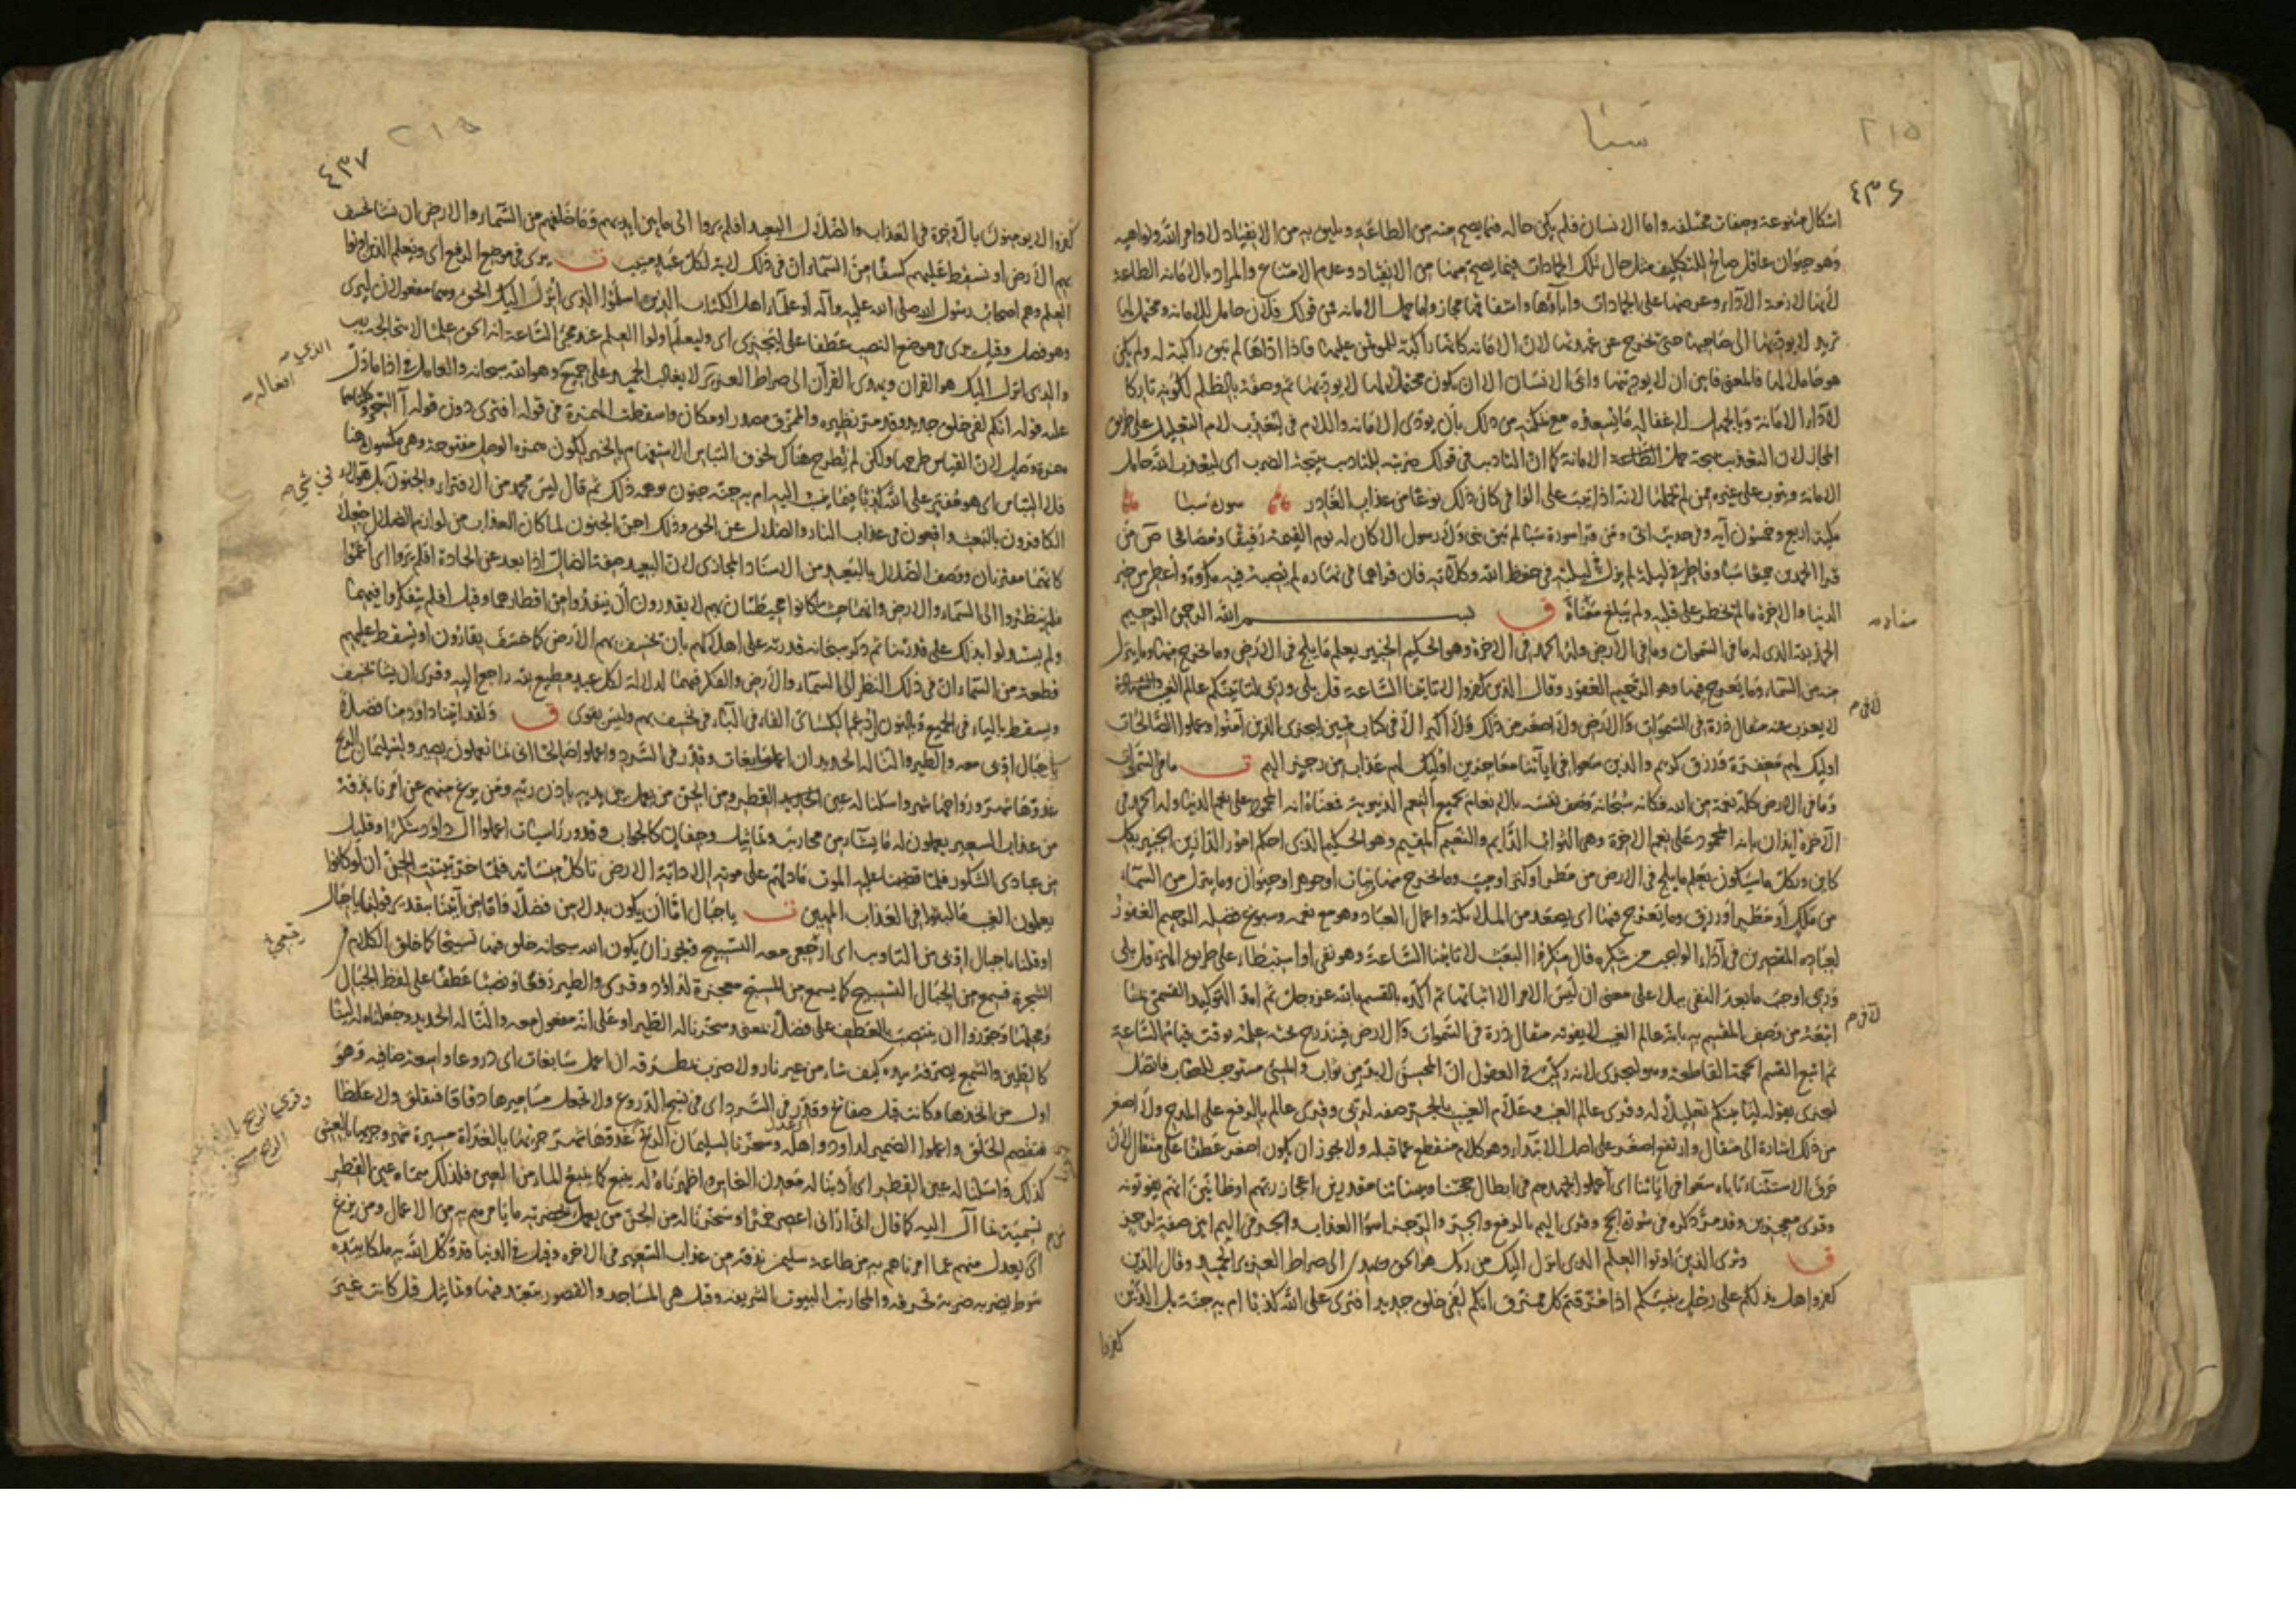 سبا
٢١٥
٤٣٦
اشكال متنوعة وصفات مختلفه واما الانسان فلم يكن حاله فيما يصح منه من الطاعة ويليق به من الانقياد لاوامر الله ونواهيه
وهو حيوان عاقل صالح للتكليف مثل حال تلك الجمادات فيما يصح منها من الانقياد وعدم الامتناع والمراد بالامانه الطاعة
لانها لازمة الاداء وعرضها على الجمادات واباؤها واشفاقها مجاز واما حمل الامانه فمن قولك فلان حامل للامانه ومحتمل لها
تريد لا يوديها الى صاحبها حتى تخرج عن عهدته لان الامانه كانها راكبة للموتمن عليها فاذا اداها لم تبق راكبة له ولم يكن
هو حاملا لها فالمعنى فابين ان لا يودينها وابى الانسان الا ان يكون محتملا لها لا يوديها ثم وصفه بالظلم لكونه تاركا
لاداء الامانة وبالجهل لاغفاله ما يسعده مع تمكنه من ذلك بان يودي الامانه واللام في ليعذب لام التعليل على طريق
المجاز لان التعذيب نتيجة حمل الامانة كما ان التاديب في قولك ضربته للتاديب نتيجة الضرب اى ليعذب الله حامل
الامانة ويتوب على غيره ممن لم يحملها لانه اذا تيب على الوافي كان ذلك نوعا من عذاب الغادر سورة سبا
مكية اربع وخمسون آيه وفي حديث ابي ومن قرا سورة سبا لم يبق نبي ولا رسول الا كان له يوم القيمة رفيقا ومصافحا ص من
قرا الحمدين جميعا سبا وفاطر في ليلة لم يزل ليلته في حفظ الله وكلاته فان قراهما في نهاره لم يصبه فيه مكروه واعطي من خير
الدنيا والاخرة ما لم يخطر على قلبه ولم يبلغ مناه ق بسم الله الرحمن الرحيم
الحمد لله الذى له ما في السموات وما في الارض وله الحمد في الاخرة وهو الحكيم الخبير يعلم ما يلج في الارض وما يخرج منها وما ينزل
من السماء وما يعرج فيها وهو الرحيم الغفور وقال الذين كفروا لا تاتينا الساعة قل بلى وربي لتاتينكم عالم الغيب
لا يعزب عنه مثقال ذرة في السموات ولا في الارض ولا اصغر من ذلك ولا اكبر الا في كتاب مبين ليجزى الذين آمنوا وعملوا الصالحات
اوليك لهم مغفرة ورزق كريم والذين سعوا في آياتنا معاجزين اوليك لهم عذاب من رجز اليم ت ما في السموات
وما في الارض كله نعمة من الله فكانه سبحانه وصف نفسه بالانعام بجميع النعم الدنيوية فمعناه انه المحمود على نعم الدنيا وله الحمد في
الاخرة ايذان بانه المحمود على نعم الاخرة وهي الثواب الدايم والنعيم المقيم وهو الحكيم الذى احكم امور الدارين الخبير بكل
كاين وبكل ما سيكون يعلم ما يلج في الارض من مطر او كنز او ميت وما يخرج منها من نبات او جوهر او حيوان وما ينزل من السماء
من ملك او مطر او رزق وما يعرج فيها اى يصعد من الملائكة واعمال العباد وهو مع نعمه وسبوغ فضله الرحيم الغفور
لعباده المقصرين في اداء الواجب من شكره قال منكروا البعث لا تاتينا الساعة وهو نفي او استبطاء على طريق الهزء قل بلى
وربي اوجب ما بعد النفي ببلى على معنى ان ليس الامر الا اتيانها ثم اكده بالقسم بالله عز وجل ثم امد التوكيد القسمي بما
اتبعه من وصف المقسم به بانه عالم الغيب لا يفوته مثقال ذرة في السموات ولا الارض فيندرج تحته علمه بوقت قيام الساعة
ثم اتبع القسم الحجة القاطعه وهو ليجزى لانه ركب في العقول ان المحسن لا بد له من ثواب والمسيء مستوجب للعقاب فاتصل
ليجزى بقوله لتاتينكم تعليلا له وقرى عالم الغيب وعلام الغيب بالجر صفه لربي وقرى عالم بالرفع على المدح ولا اصغر
من ذلك اشارة الى مثقال وارتفع اصغر على اصل الابتداء وهو كلام منقطع عما قبله ولا يجوز ان يكون اصغر عطفا على مثقال لان
حرف الاستثناء ياباه سعوا في اياتنا اى اعملوا جهدهم في ابطال حججنا وبيناتنا مقدرين اعجاز ربهم او ظانين انهم يفوتونه
وقرى معجزين وقد مر ذكره في سورة الحج وقرى اليم بالرفع والجر والرجز اسوا العذاب والجر في اليم ابين صفة لرجز
ق ويرى الذين اوتوا العلم الذى انزل اليك من ربك هو الحق ويهدى الى صراط العزيز الحميد وقال الذين
كفروا هل ندلكم على رجل ينبئكم اذا مزقتم كل ممزق انكم لفي خلق جديد افترى على الله كذبا ام به جنة بل الذين
كفروا
٤٣٧
كفروا لا يومنون بالآخرة في العذاب والضلال البعيد افلم يروا الى ما بين ايديهم وما خلفهم من السماء والارض ان نشا نخسف
بهم الارض او نسقط عليهم كسفا من السماء ان في ذلك لاية لكل عبد منيب ت يرى في موضع الرفع اى ويعلم الذين اوتوا
العلم وهم اصحاب رسول الله صلى الله عليه وآله او علماء اهل الكتاب الذين اسلموا الذى انزل اليك الحق وهما مفعولان ليرى
وهو فصل وقيل يرى في موضع النصب عطفا على ليجزى اى وليعلم اولوا العلم عند مجئ الساعة انه الحق علما لا يتخالجه ريب
والذى انزل اليك هو القران ويهدى القرآن الى صراط العزيز الذي لا يغالب الحميد على جميع افعاله وهو الله سبحانه والعامل في اذا ما دل
عليه قوله انكم لفي خلق جديد وقد مر نظيره والممزق مصدر او مكان واسقطت الهمزة في قوله افترى دون قوله آلسحر وكلتاهما
همزة وصل لان القياس طرحها ولكن لم تطرح هناك لخوف التباس الاستفهام بالخبر لكون همزة الوصل مفتوحة وهي مكسورة هنا
فلا التباس اى هو مفتر على الله كذبا فيما ينسب اليه ام به جنة جنون وهمه ذلك ثم قال ليس محمد من الافتراء والجنون في شيء بل هولاء
الكافرون بالبعث واقعون في عذاب النار والضلال عن الحق وذلك اجن الجنون لما كان العذاب من لوازم الضلال جعلا
كانهما مقترنان ووصف الضلال بالبعيد من الاسناد المجازى لان البعيد صفة الضال اذا بعد عن الجادة افلم يروا اى اعموا
فلم ينظروا الى السماء والارض وانهما حيث ما كانوا محيطتان بهم لا يقدرون ان ينفذوا من اقطارهما وقيل افلم يتفكروا فيهما
ولم يستدلوا بذلك على قدرتنا ثم ذكر سبحانه قدرته على اهلاكهم بان يخسف بهم الارض كما خسف بقارون او يسقط عليهم
قطعة من السماء ان في ذلك النظر الى السماء والارض والفكر فيهما لدلالة لكل عبد مطيع لله راجع اليه وقرى ان يشا يخسف
ويسقط بالياء في الجميع وبالنون وادغم الكسائى الفاء في الباء في نخسف بهم وليس بقوى ق ولقد اتينا داود منا فضلا
يا جبال اوبى معه والطير والنا له الحديد ان اعمل سابغات وقدر في السرد واعملوا صالحا انى بما تعملون بصير ولسليمان الريح
غدوها شهر ورواحها شهر واسلنا له عين القطر ومن الجن من يعمل بين يديه باذن ربه ومن يزغ منهم عن امرنا نذقه
من عذاب السعير يعملون له ما يشاء من محاريب وتماثيل وجفان كالجواب وقدور راسيات اعملوا ال داود شكرا وقليل
من عبادى الشكور فلما قضينا عليه الموت ما دلهم على موته الا دابة الارض تاكل منساته فلما خر تبينت الجن ان لو كانوا
يعلمون الغيب ما لبثوا في العذاب المهين ت يا جبال اما ان يكون بدلا من فضلا واما من آتينا بتقدير قولنا يا جبال
او قلنا يا جبال اوبى من التاويب اى ارجعى معه التسبيح ويجوز ان يكون الله سبحانه خلق فيها تسبيحا كما خلق الكلام في
الشجرة فيسمع من الجبال التسبيح كما يسمع من المسبح معجزة لداود وقرى والطير رفعا ونصبا عطفا على لفظ الجبال
ومحلها وجوزوا ان ينتصب بالعطف على فضلا بمعنى وسخرنا له الطير او على انه مفعول معه والنا له الحديد وجعلناه له لينا
كالطين والشمع يصرفه بيده كيف شاء من غير نار ولا ضرب بمطرقه ان اعمل سابغات اى دروعا واسعة ضافيه وهو
اول من اتخذها وكانت قبل صفائح وقدر في السرد اى في نسج الدروع ولا تجعل مساميرها دقاقا فتقلق ولا غلاظا
فتفصم الحلق واعملوا الضمير لداود واهله وسخرنا لسليمان الريح غدوها شهر جريها بالغداة مسيرة شهر وجريها بالعشى
كذلك واسلنا له عين القطر اى اذبنا له معدن النحاس واظهرناه له ينبع كما ينبع الماء من العين فلذلك سماه عين القطر
تسمية بما آل اليه كما قال انى ارانى اعصر خمرا وسخرنا له من الجن من يعمل بحضرته ما يامرهم به من الاعمال ومن يزغ
اى يعدل منهم عما امرناهم به من طاعة سليمن نذقه من عذاب السعير في الاخره وقيل في الدنيا وقد وكل الله به ملكا بيده
سوط يضربه ضربة تحرقه والمحاريب البيوت الشريفه وقيل هي المساجد والقصور يتعبد فيها وتماثيل قيل كانت غير